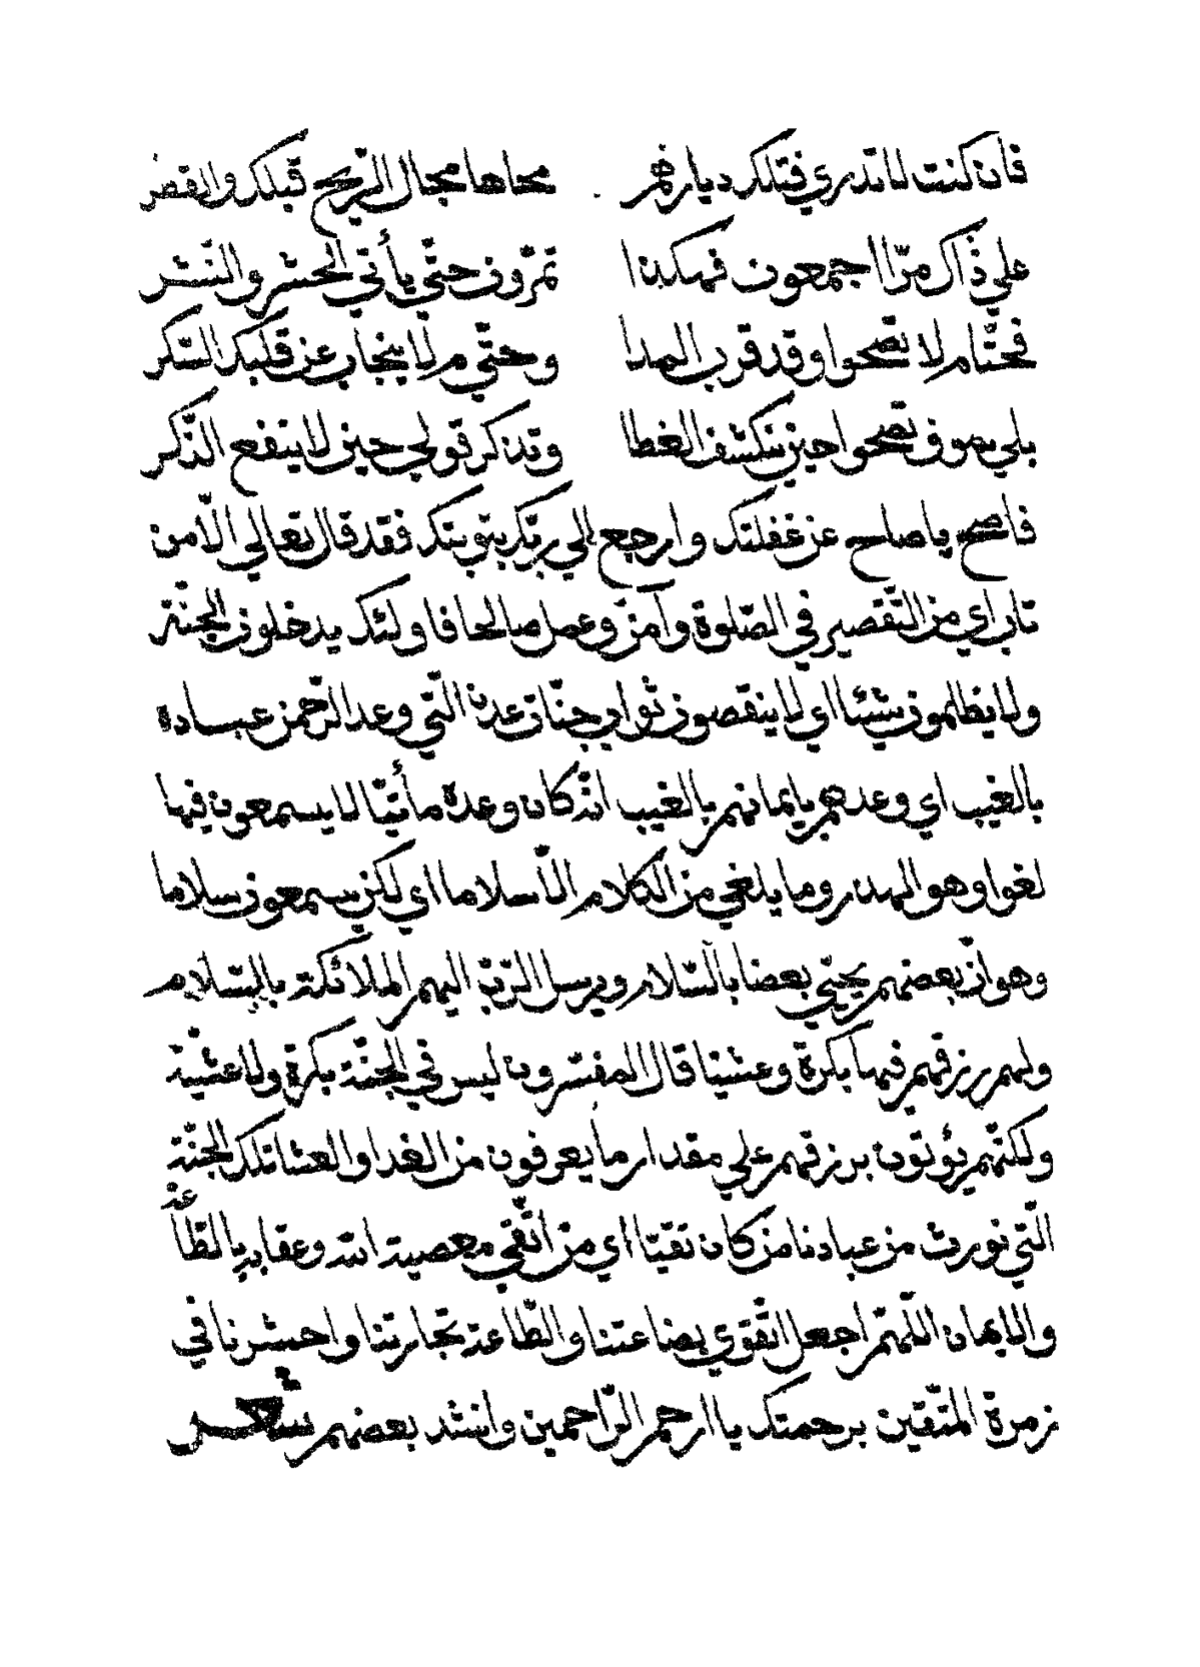 فان كنت لا تدري فتلك ديارهم محاها مجال الريح قبلك والقطر
علي ذاك مرّا اجمعون فهكذا تمرّون حتّي يأتي الحشر والنشر
فحتّام لا تصحوا وقد قرب المدا وحتّي م لا ينجاب عن قلبك السّكر
بلي سوف تصحوا حين ينكشف الغطا وتذكر قولي حين لا ينفع الذّكر
فاصح يا صاح عن غفلتك وارجع الي ربّك بتوبتك فقد قال تعالي الّا من
تاب اي من التّقصير في الصّلوة وآمن وعمل صالحا فاولئك يدخلون الجنّة
ولا يظلمون شيئا اي لا ينقصون ثواب جنّات عدن الّتي وعد الرّحمن عباده
بالغيب اي وعدهم بايمانهم بالغيب انّه كان وعده مأتيّا لا يسمعون فيها
لغوا وهو الهدر وما يلغي من الكلام الّا سلاما اي لكن يسمعون سلاما
وهو انّ بعضهم يحيّي بعضا بالسّلام ويرسل الرّبّ اليهم الملائكة بالسّلام
ولهم رزقهم فيها بكرة وعشيّا قال المفسّرون ليس في الجنّة بكرة ولا عشيّة
ولكنّهم يؤتون برزقهم علي مقدار ما يعرفون من الغدا والعشا تلك الجنّة
الّتي نورث من عبادنا من كان تقيّا اي من اتّقي معصية الله وعقابه بالطّاعة
والايمان اللّهمّ اجعل التّقوي بضاعتنا والطّاعة تجارتنا واحشرنا في
زمرة المتّقين برحمتك يا ارحم الرّاحمين وانشد بعضهم شعر